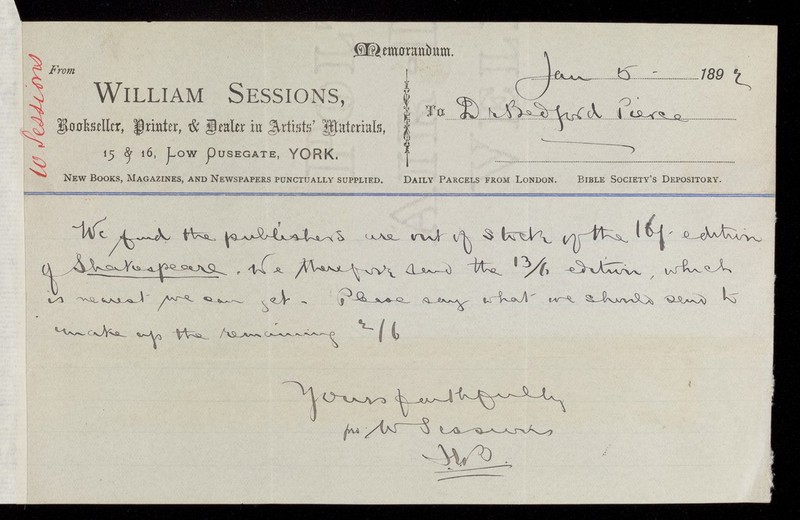 Memorandum.
W Sessions
From
WILLIAM SESSIONS,
Bookseller, Printer, & Dealer in Artists' Materials,
15 & 16, LOW OUSEGATE, YORK.
Jan 5 - 1892
To Dr Bedford Pierce
NEW BOOKS, MAGAZINES, AND NEWSPAPERS PUNCTUALLY SUPPLIED. DAILY PARCELS FROM LONDON. BIBLE SOCIETY'S DEPOSITORY.
We find the publishers are out of stock of the 16/- edition
of Shakespeare. We therefore send the 13/6 edition, which
is nearest we can get. Please say what we should send to
make up the remaining 2/6
Yours faithfully
pro W Sessions